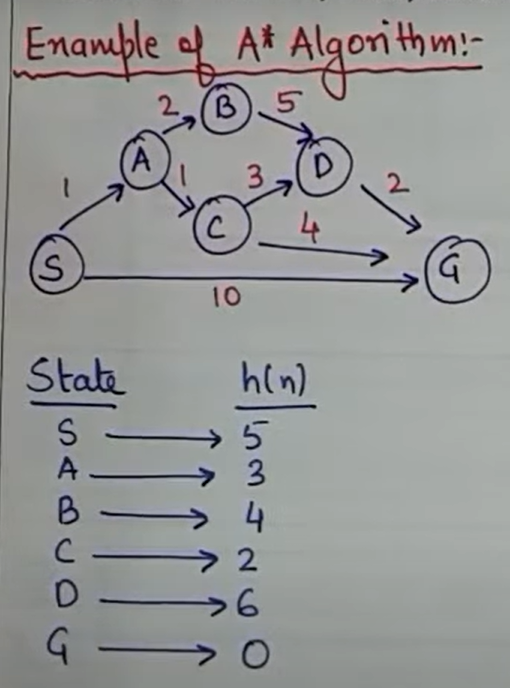 Example of A* Algorithm:-
2 B 5
A D
1 1 3 2
C 4
S G
10
State h(n)
S → 5
A → 3
B → 4
C → 2
D → 6
G → 0